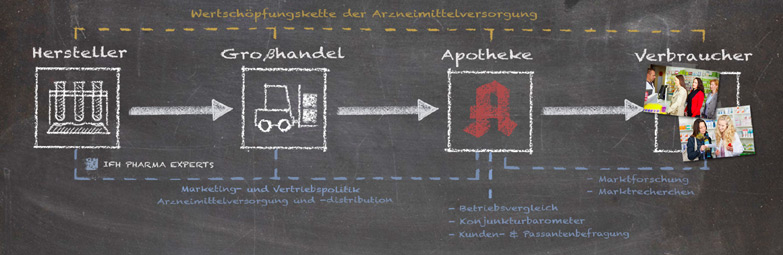 Wertschöpfungskette der Arzneimittelversorgung
Hersteller
Großhandel
Apotheke
Verbraucher
IFH PHARMA EXPERTS
Marketing- und Vertriebspolitik
Arzneimittelversorgung und -distribution
- Betriebsvergleich
- Konjunkturbarometer
- Kunden- & Passantenbefragung
- Marktforschung
- Marktrecherchen